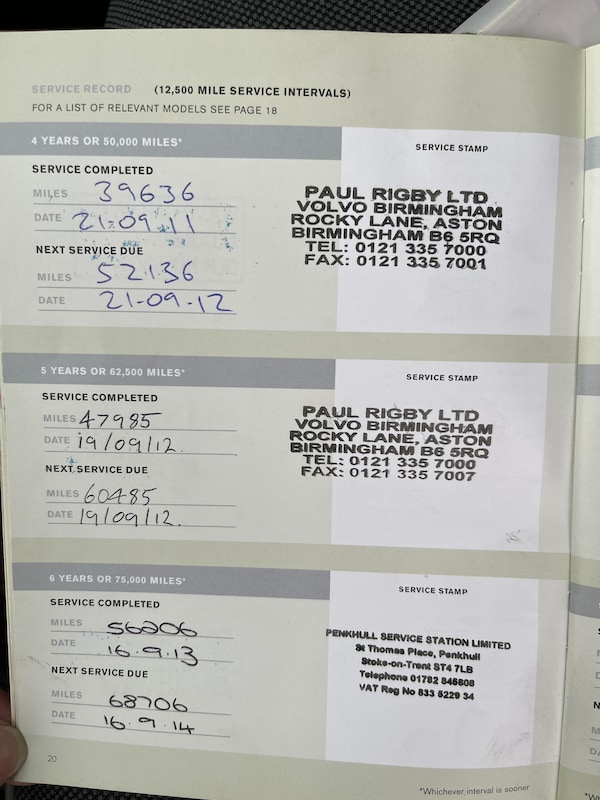 SERVICE RECORD (12,500 MILE SERVICE INTERVALS)
FOR A LIST OF RELEVANT MODELS SEE PAGE 18
4 YEARS OR 50,000 MILES*
SERVICE STAMP
SERVICE COMPLETED
MILES 39636
DATE 21.09.11
NEXT SERVICE DUE
MILES 52136
DATE 21-09-12
PAUL RIGBY LTD
VOLVO BIRMINGHAM
ROCKY LANE, ASTON
BIRMINGHAM B6 5RQ
TEL: 0121 335 7000
FAX: 0121 335 7001
5 YEARS OR 62,500 MILES*
SERVICE STAMP
SERVICE COMPLETED
MILES 47985
DATE 19/09/12.
NEXT SERVICE DUE
MILES 60485
DATE 19/09/12.
PAUL RIGBY LTD
VOLVO BIRMINGHAM
ROCKY LANE, ASTON
BIRMINGHAM B6 5RQ
TEL: 0121 335 7000
FAX: 0121 335 7007
6 YEARS OR 75,000 MILES*
SERVICE STAMP
SERVICE COMPLETED
MILES 56206
DATE 16.9.13
NEXT SERVICE DUE
MILES 68706
DATE 16.9.14
PENKHULL SERVICE STATION LIMITED
St Thomas Place, Penkhull
Stoke-on-Trent ST4 7LB
Telephone 01782 845808
VAT Reg No 833 5229 34
20
*Whichever interval is sooner